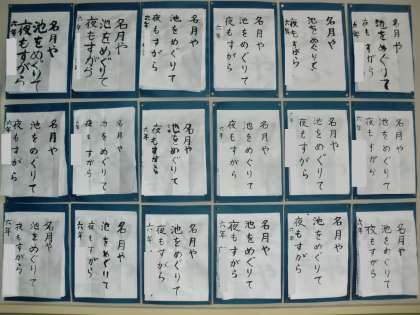 名月や
池をめぐりて
夜もすがら
六年
名月や
池をめぐりて
夜もすがら
六年
名月や
池をめぐりて
夜もすがら
六年
名月や
池をめぐりて
夜もすがら
六年
名月や
池をめぐりて
夜もすがら
六年
名月や
池をめぐりて
夜もすがら
六年
名月や
池をめぐりて
夜もすがら
六年
名月や
池をめぐりて
夜もすがら
六年
名月や
池をめぐりて
夜もすがら
六年
名月や
池をめぐりて
夜もすがら
六年
名月や
池をめぐりて
夜もすがら
六年
名月や
池をめぐりて
夜もすがら
六年
名月や
池をめぐりて
夜もすがら
六年
名月や
池をめぐりて
夜もすがら
六年
名月や
池をめぐりて
夜もすがら
六年
名月や
池をめぐりて
夜もすがら
六年
名月や
池をめぐりて
夜もすがら
六年
名月や
池をめぐりて
夜もすがら
六年